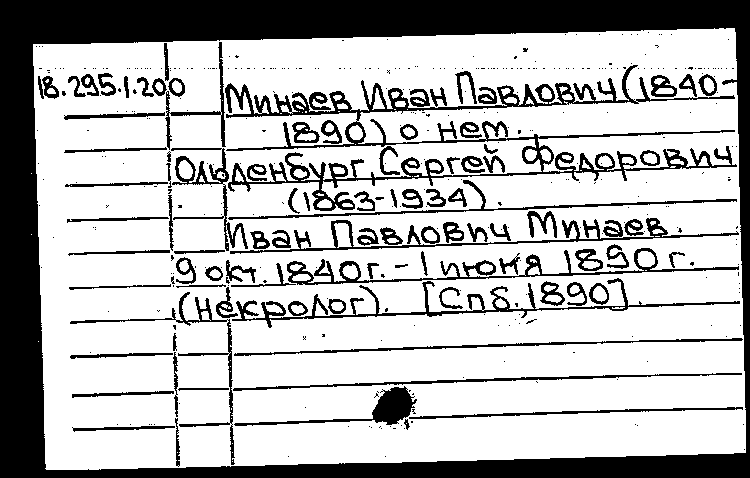 18.295.1.200 Минаев, Иван Павлович (1840-
1890) о нем.
Ольденбург, Сергей Федорович
(1863-1934).
Иван Павлович Минаев.
9 окт. 1840г. - 1 июня 1890 г.
(некролог). [Спб., 1890].